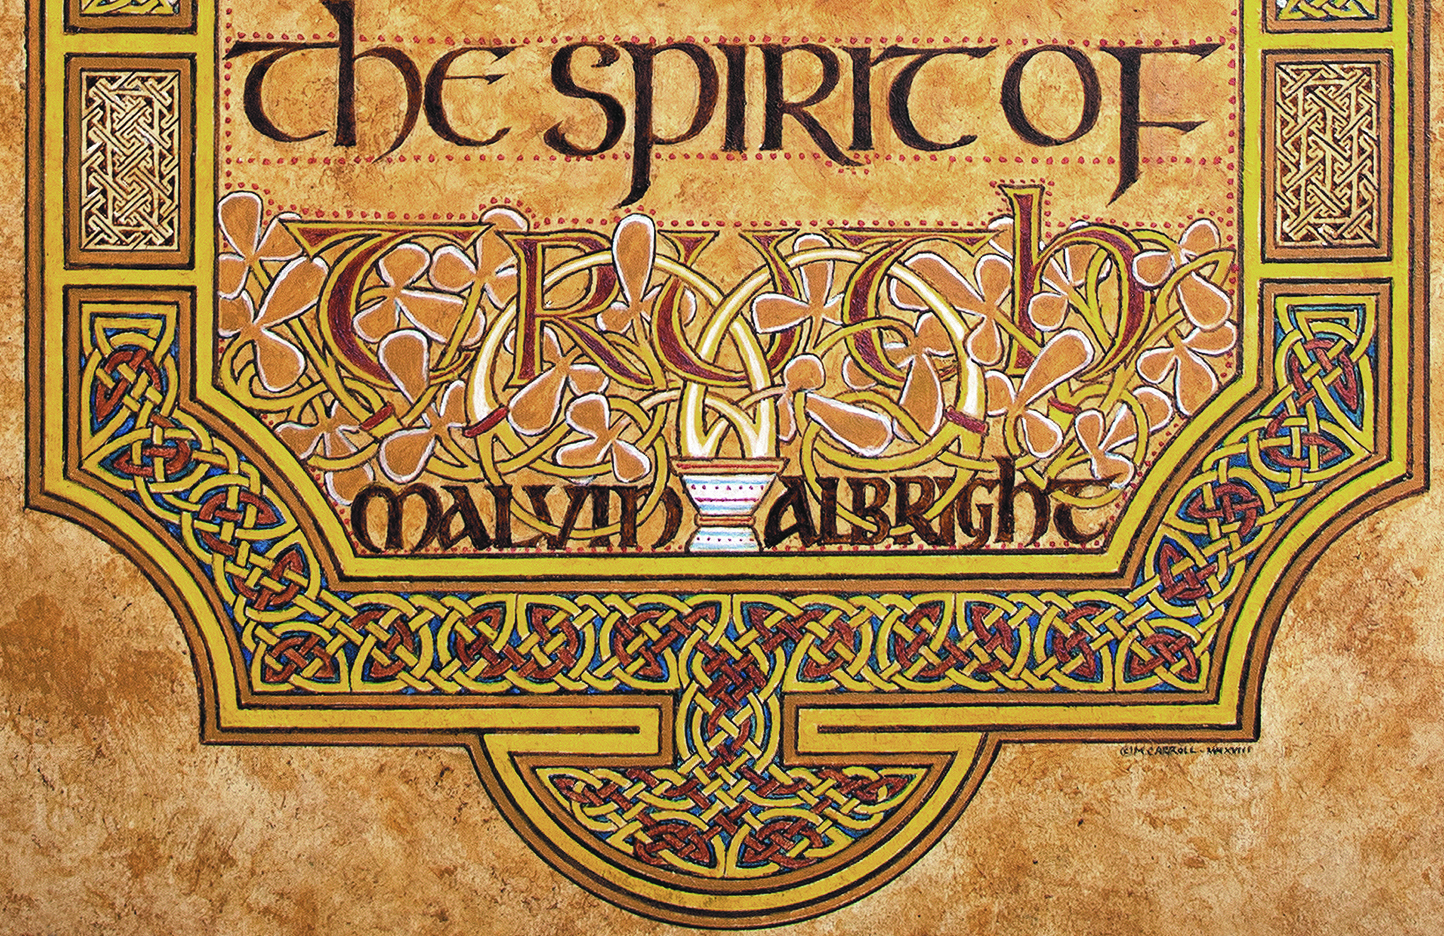 the spirit of
truth
malvin albright
(C) M. CARROLL - MMXVIII